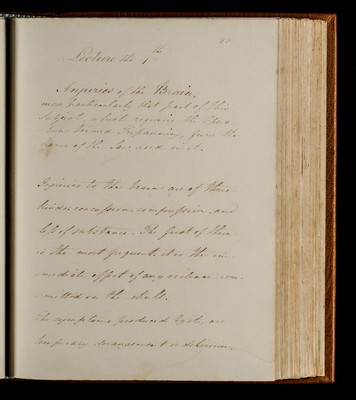 Lecture the 1th
Injuries of the Brain,
more particularly that part of this
subject, which requires the
been termed Trepanning, from the
name of the Saw used in it.
Injuries to the brain are of three
kinds concussion, compression, and
loss of substance. The first of these
is the most frequent, it is the im-
mediate effect of any violence com-
mitted on the skull.
The symptoms produced by it, are
temporary derangement or delirium.